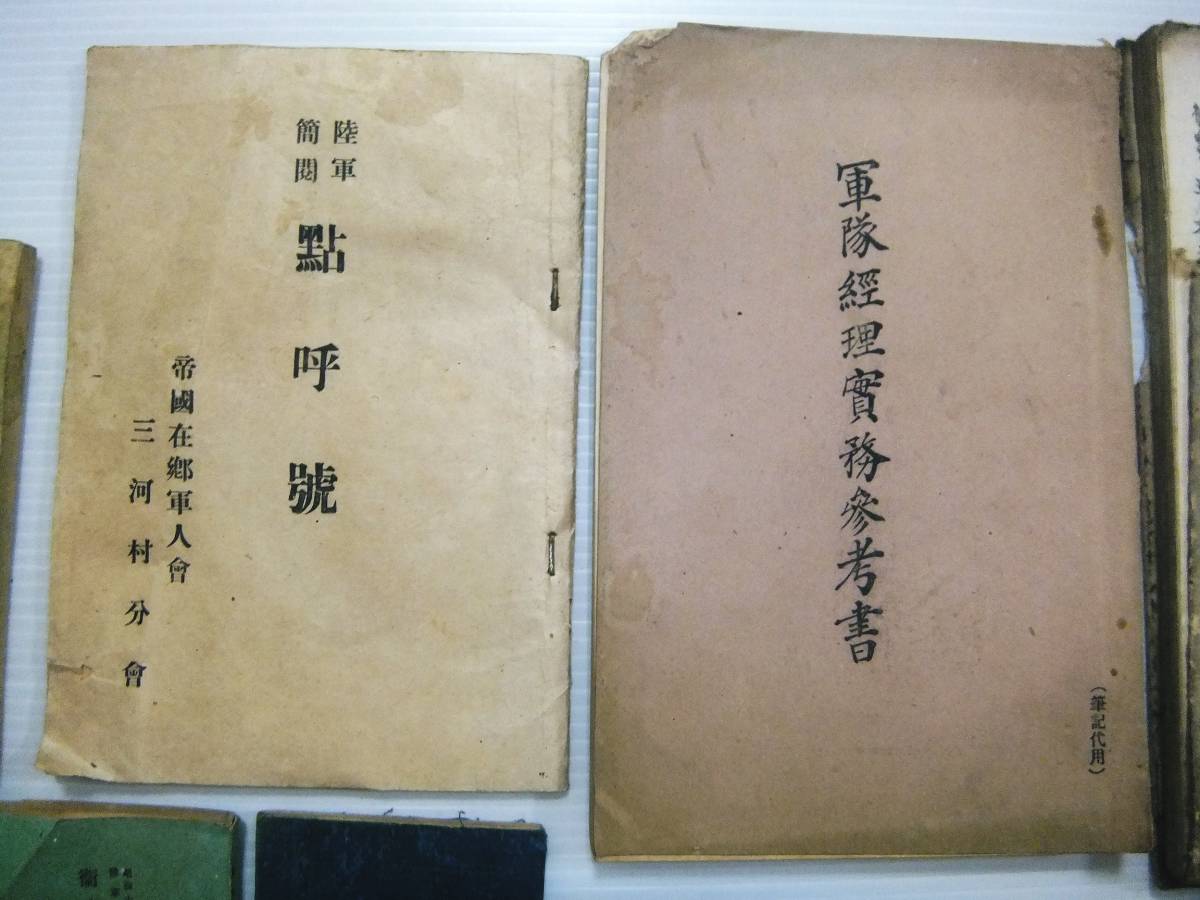 陸軍
簡閲
點呼號
帝國在鄕軍人會
三河村分會
軍隊經理實務參考書
(筆記代用)
衞